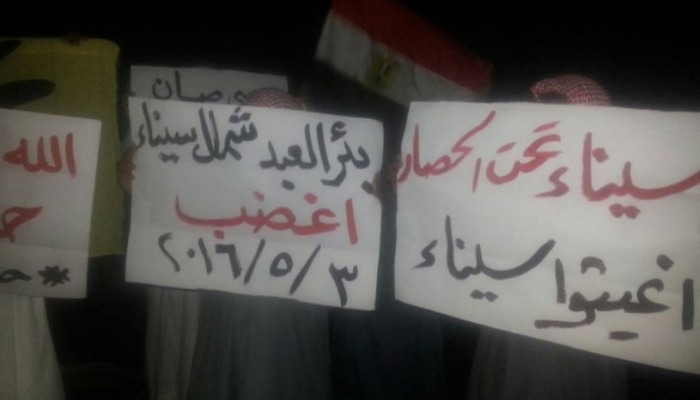 سيناء تحت الحصار
اغيثوا سيناء
بئر العبد شمال سيناء
اغضب
٢٠١٦/٥/٣
الله